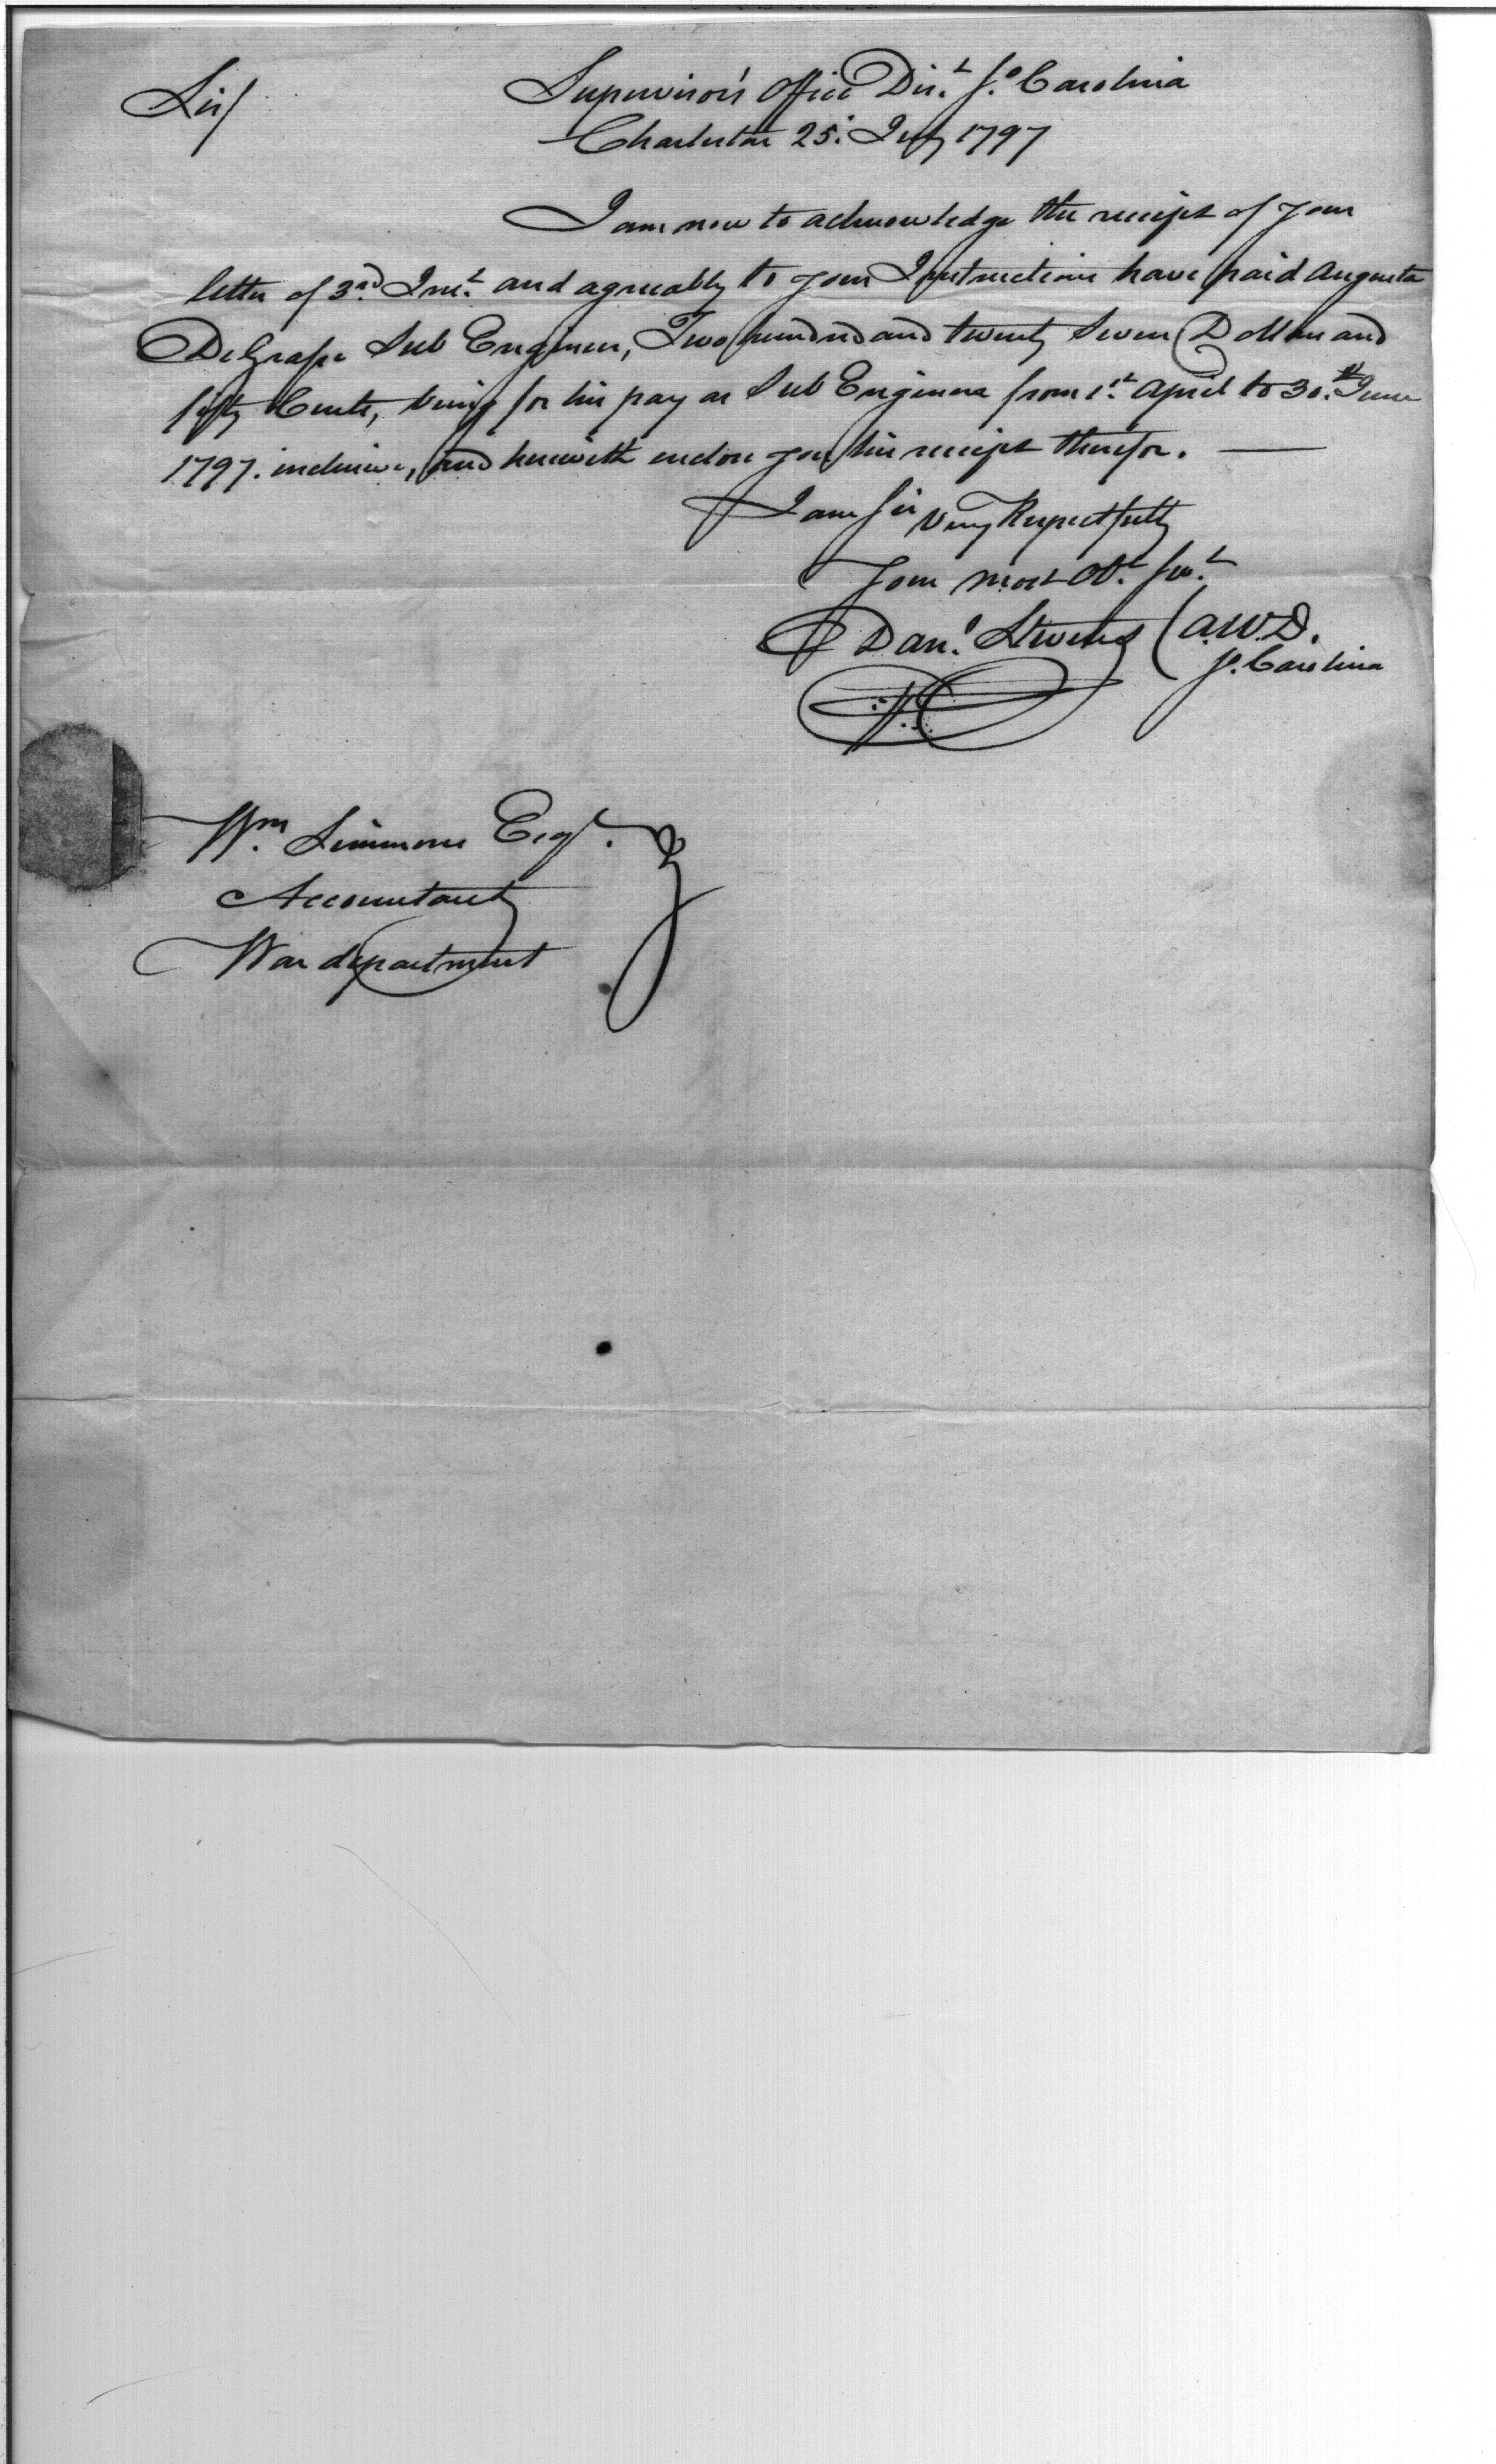 Sir/
Supervisor's Office Dis.t S.o Carolina
Charleston 25. July 1797
I am now to acknowledge the receipt of your
letter of 3.rd Inst. and agreeably to your Instructions have paid Augusta
DeGrasse Sub Engineer, Two hundred and twenty Seven Dollars and
fifty Cents, being for his pay as Sub Engineer from 1.st April to 30.th June
1797. inclusive, and herewith enclose you his receipt therefor. —
I am Sir Very Respectfully
Your most Ob.t Ser.t
Dan.l Stevens (A.W.D.
S. Carolina
W.m Simmons Esq.r
Accountant
War department